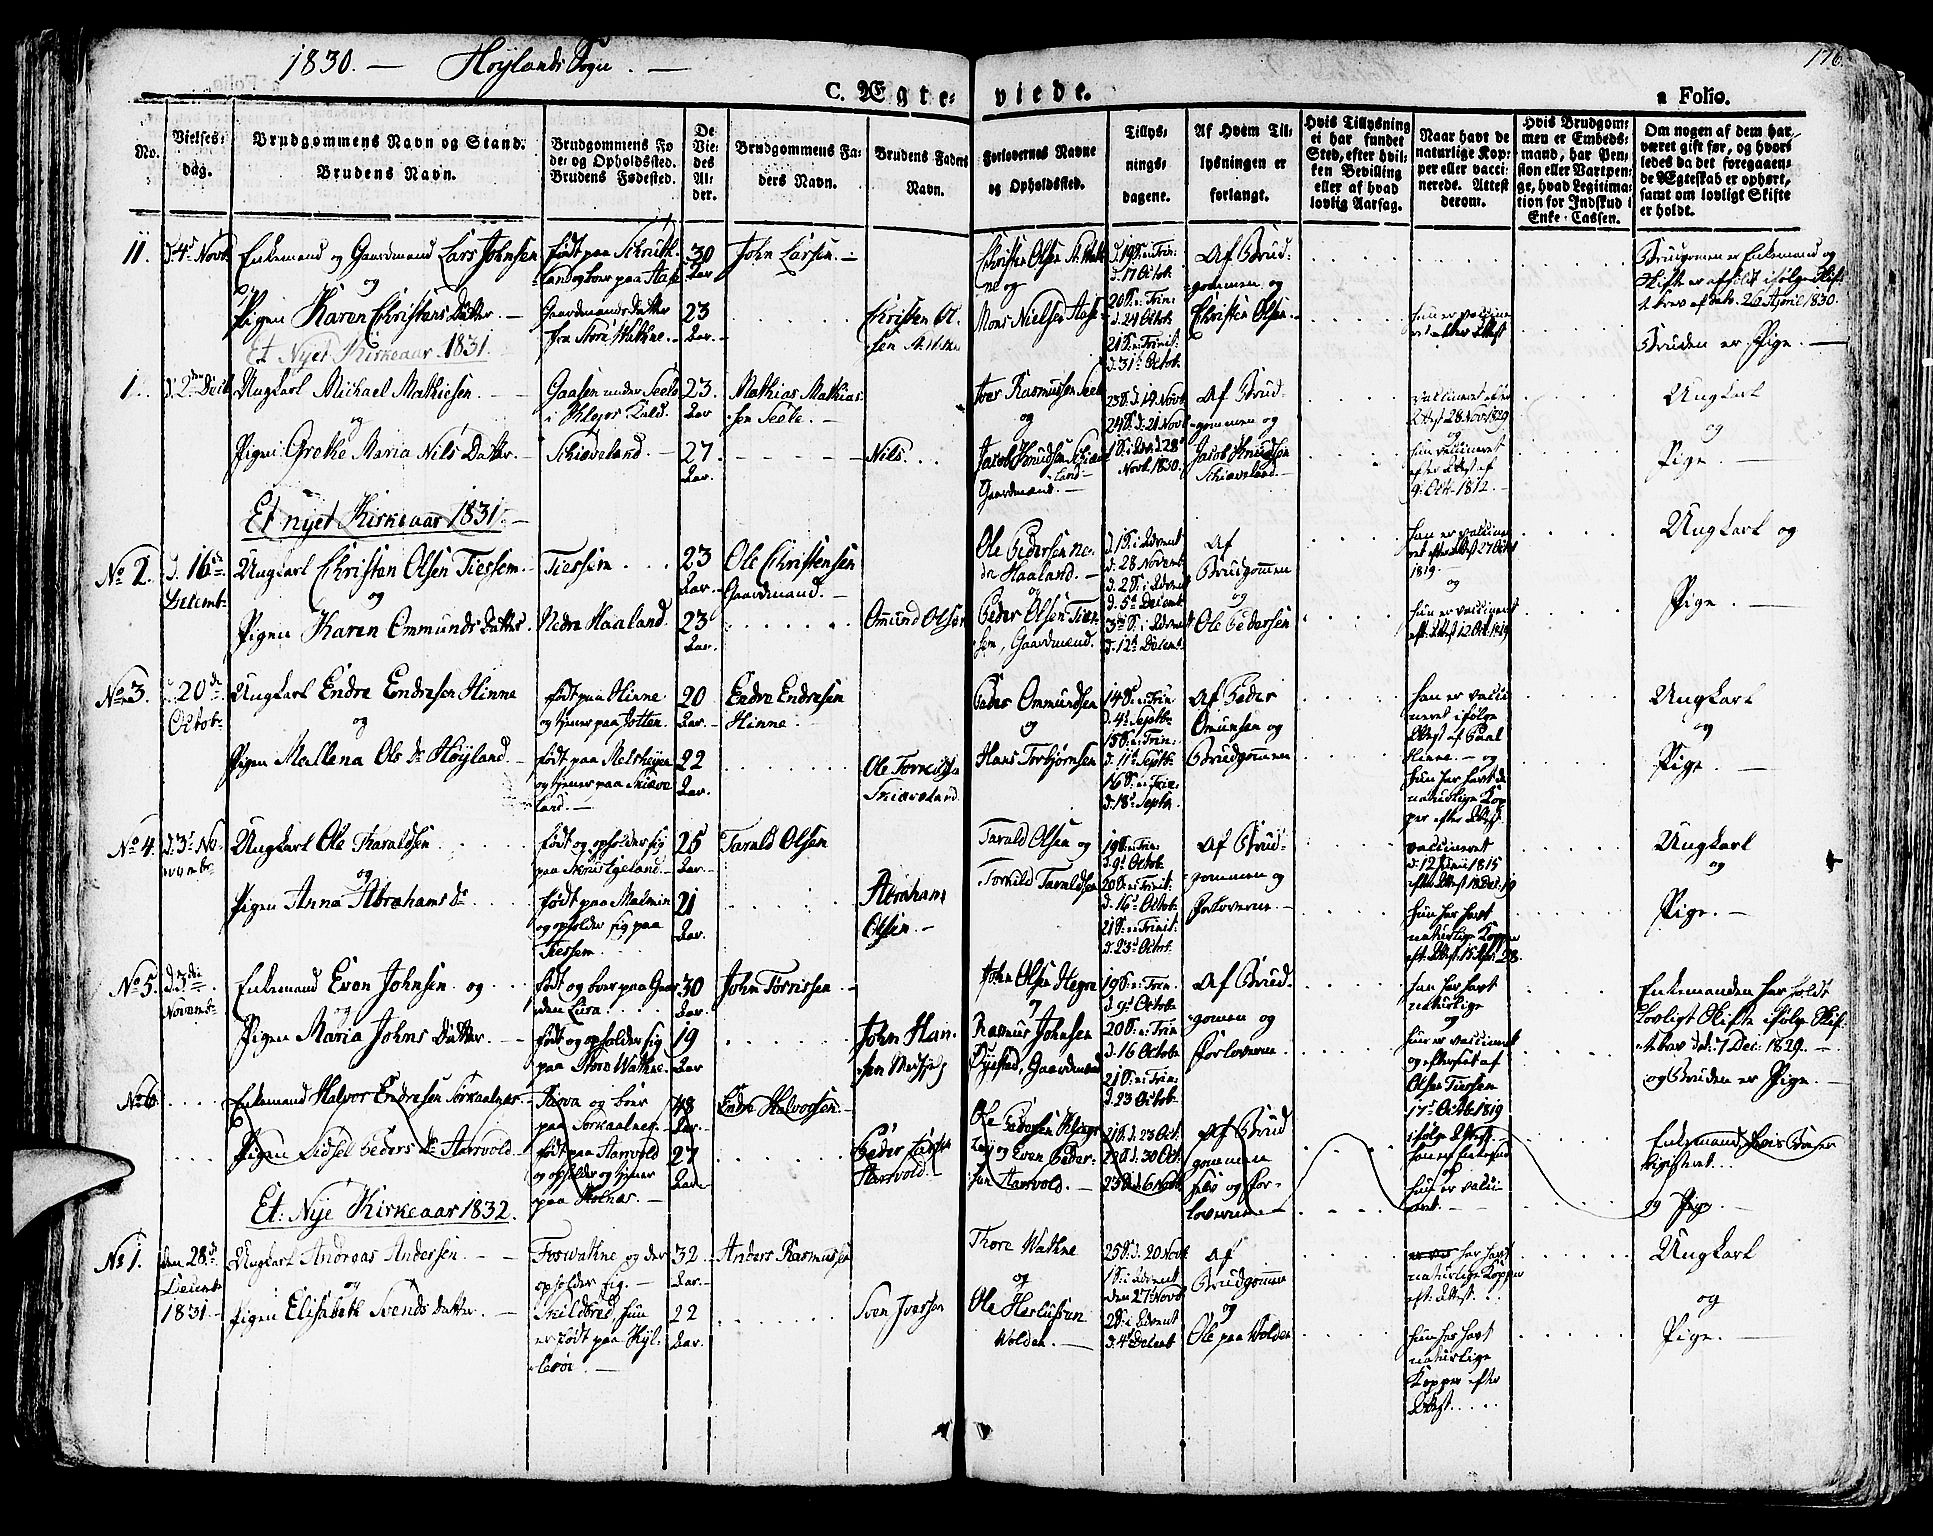 1830. — Höylands Sogn. —
176
C. Ægte- viede.
a Folio.
No.
Vielses-
dag.
Brudgommens Navn og Stand.
Brudens Navn.
Brudgommens Fø-
de- og Opholdssted.
Brudens Fødested.
De
Vie-
des
Al-
der.
Brudgommens Fa-
ders Navn.
Brudens Faders
Navn.
Forlovernes Navne
og Opholdssted.
Tillys-
nings-
dagene.
Af Hvem Til-
lysningen er
forlangt.
Hvis Tillysning
ei har fundet
Sted, efter hvil-
ken Bevilling
eller af hvad
lovlig Aarsag.
Naar havt de
naturlige Kop-
per eller vacci-
nerede. Attest
derom.
Hvis Brudgom-
men er Embeds-
mand, har Pen-
sion eller Vartpen-
ge, hvad Legitima-
tion for Indskud i
Enke-Cassen.
Om nogen af dem har
været gift før, og hvor-
ledes da det foregaaen-
de Ægteskab er ophørt,
samt om lovligt Skifte
er holdt.
11. d. 4de Novb.
Enkemand og Gaardmand Lars Johnsen
og
Pigen Karen Christens Datter. —
født paa
Gaardmands Datter
fra Store Wathne.
30
Aar
23
Aar
John Larsen. —
Christen Ol-
sen
Christen Olsen
og
Mons Nielsen
d. 17 Octob.
d. 24 Octob.
d. 31 Octob.
Af Brud-
gommen og
Christen Olsen
hun er vaccine-
ret efter Attest
Brudgommen er Enkemand og
Skifte er afholdt ifølge Skif-
tebrev af dato 26 April 1830.
Bruden er Pige. —
Et Nyet Kirkeaar 1831.
1. d. 2den Decb.
Ungkarl Michael Mathiesen.
og
Pigen Grethe Maria Nils Datter.
i Klepps
Skiaveland. —
23
Aar
27
Aar.
Mathias Mathias-
sen Seele. —
Nils. . .
Iver Rasmussen Seele
og
Jacob Knudsen Skiave-
land
Gaardmænd. —
d. 14 Novb.
d. 21 Novb.
Novb. 1830.
Af Brud-
gommen og
Jacob Knudsen
Skiaveland. —
vaccineret efter
Attest 28 Nov. 1829
og
hun vaccineret
efter Attest af
9. Oct. 1812. —
Ungkarl
og
Pige. —
Et nyet Kirkeaar 1831. —
No 2. d. 16de
Decemb.
Ungkarl Christen Olsen Tiessem.
og
Pigen Karen Ommunds Datter.
Tiessem . . .
Nedre Haaland.
23
Aar.
23
Aar.
Ole Christensen
Gaardmand. —
Omund Olsen
Ole Pedersen Ne-
dre Haaland. —
og
Peder Olsen Ties-
sem, Gaardmænd.
d. 1 S. i Advent
d. 28 Novemb.
d. 2 S. i Advent
d. 5te Decemb.
3die S. i Advent
d. 12te Decemb.
Af
Brudgommen
og
Ole Pedersen
han er vaccine-
ret efter Attest 27 Octob.
1819. —
og
hun er vaccineret
eft. Attest 12 Oct. 1819
Ungkarl og
Pige. —
No 3. d. 20de
Octob.
Ungkarl Endre Endresen Hinne
og
Pigen Mallena Ols Dr Höyland. —
født paa Hinne
og tjener paa Jotten.
født paa
og tjener paa Skiave-
land. —
20
Aar.
22
Aar.
Endre Endresen
Hinne. —
Ole
Skiaveland.
Peder Ommundsen
og
Hans Torbjørnsen
14 S. e. Trin.
d. 4de Septb.
15 S. e. Trin.
d. 11te Septb.
16 S. e. Trin.
d. 18de Septb.
Af Peder
Omunsen og
Brudgommen
han er vacci-
neret ifølge
Attest af Paal
Hinne. — og
hun har havt de
naturlige Kop-
per efter Attest.
Ungkarl
og
Pige. —
No 4. d. 3de No-
vembr.
Ungkarl Ole Taraldsen
og
Pigen Anna Abrahams Dr
født og opholder sig
paa
født paa Malmin
og opholder sig paa
Tiessem.
25
Aar.
21
Aar.
Tarald Olsen
Abraham
Olsen. —
Tarald Olsen og
Torkild Taraldsen
19 S. e. Trin.
d. 9de Octob.
20 S. e. Trinit.
d. 16de Octob.
21 S. e. Trinit.
d. 23de Octob.
Af Brud-
gommen og
Forloverne. —
vaccineret
d. 12 Junii 1815
efter Attest 18 Dec. 19
hun har havt
naturlige Kopper
Ungkarl
og
Pige. —
No 5. d. 3die
Novemb.
Enkemand Even Johnsen og
Pigen Maria Johns Datter
født og boer paa Gaar-
den Lura.
født og opholder sig
paa Store Wathne.
30
Aar.
19
Aar
John Torrissen. —
John Han-
sen
John Olsen Hegre
og
Rasmus Johnsen
Gaardmænd
19 S. e. Trin.
d. 9de Octob.
20 S. e. Trin.
d. 16 Octob.
21 S. e. Trin.
d. 23 Octob.
Af Brud-
gommen og
Forloverne
han har havt
naturlige
og
hun er vaccineret
Olsen Tiessem
17de Octb. 1819
ifølge Attest
Enkemanden har holdt
Lovligt Skifte ifølge Skif-
tebrev dat. 7 Dec. 1829. —
og Bruden er Pige. —
No 6.
Enkemand Halvor Endresen Sörkaalnæs.
Pigen Sidsel Peders Dr Aarvold.
og boer
paa Sörkaalnes. —
født paa Aarvold
og opholder og tjener
paa
48
Aar.
27
Aar.
Endre Halvorsen. —
Peder
Aarvold. —
Ole Pedersen
og Even Peder-
sen Aarvold. —
21 S. d. 23 Oct.
22 S. d. 30 Oct.
23 S. d. 6 Novb.
Af Brud-
gommen
selv og For-
loverne —
og
hun er vacci-
neret. —
Enkemand
og Pige. —
Et Nije Kirkeaar 1832.
No 1. den 28de
Decemb.
1831. —
Ungkarl Andreas Andersen.
og
Pigen Elisabeth Svends Datter.
Foswathne og der
opholder sig. —
hun
er født paa
32
Aar.
22
Aar.
Anders Rasmussen
Sven Iversen
Thore Wathne
og
Ole
Wolden. —
25 S. d. 20 Novb.
1 S. i Advent
den 27 Novb.
2 S. i Advent
d. 4de Decemb.
Af
Brudgommen
og
Ole paa Wolden
har havt
naturlige Kopper
eft. Attest. . .
hun har havt
naturlige
Kopper efter
Attest. . . .
Ungkarl
og
Pige. —